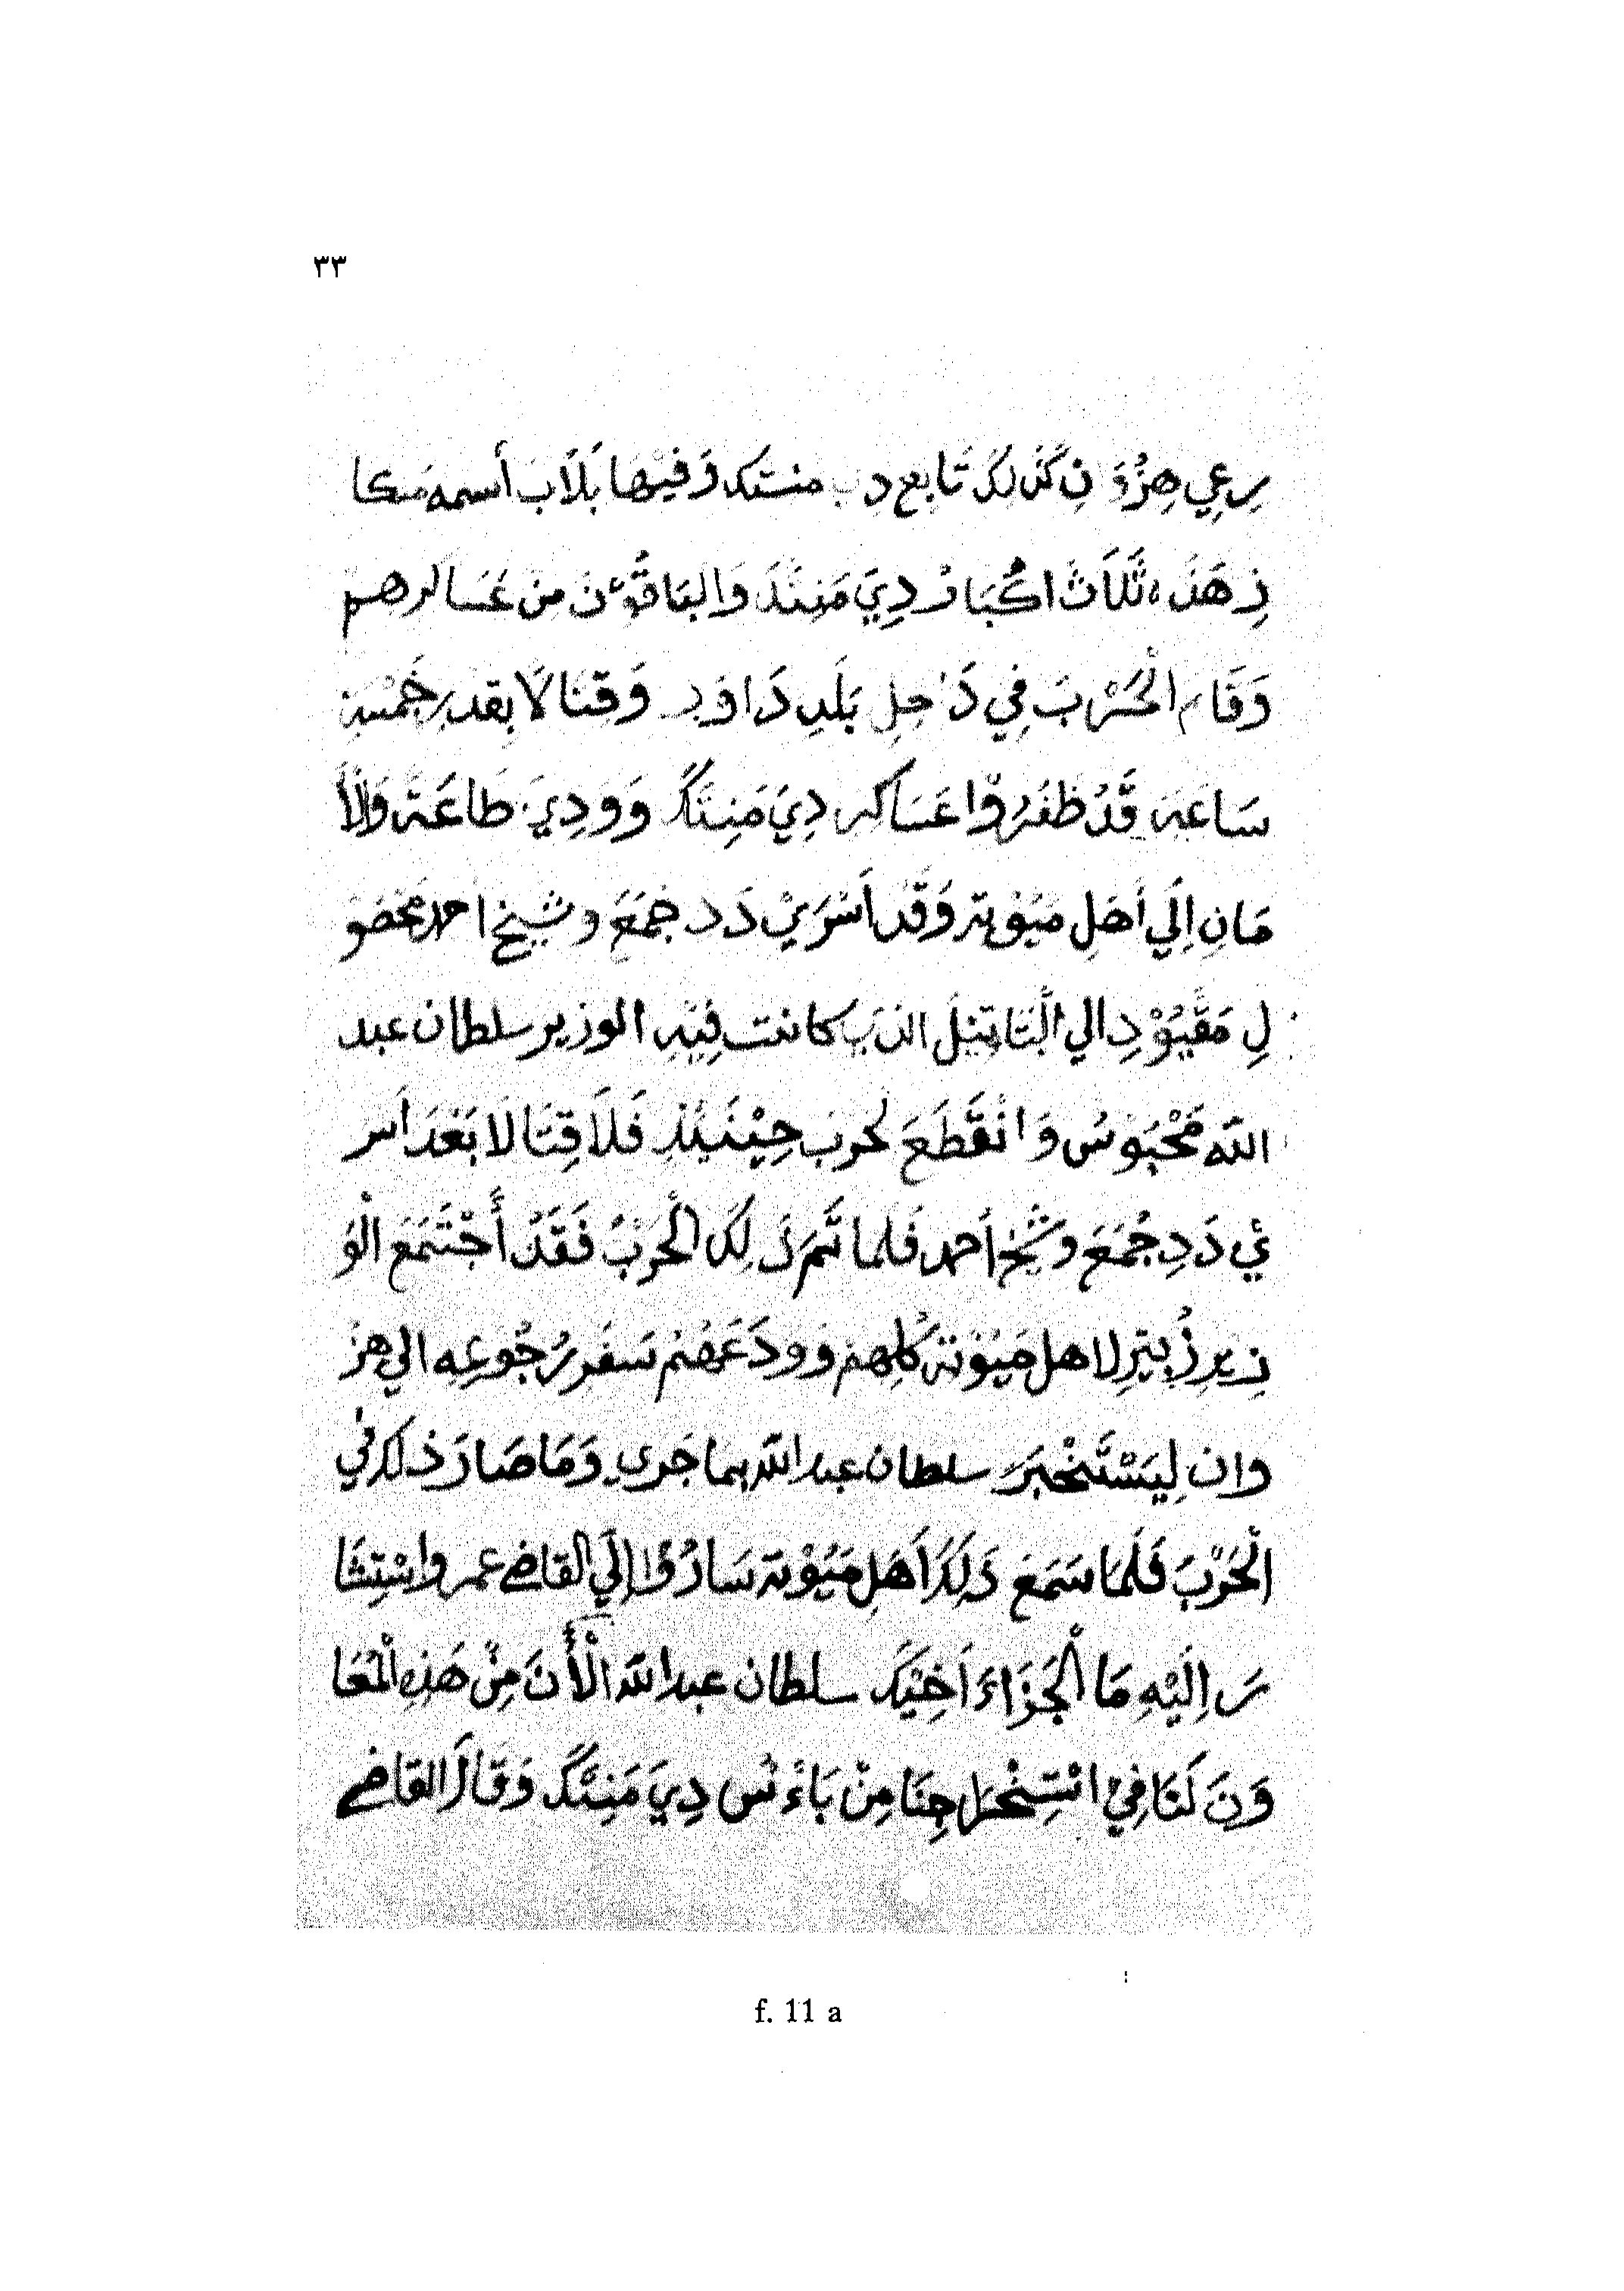 ٣٣
رعي هِزُوَانِ كَذَلِكَ تَابِع دِي منتك وَفِيْهَا بَلَابَ أسمه مكا
ذِ هَذَه ثَلَاثَ اكُبَارْ دِيَ مَنِنَدَ وَالبَاقُوْنَ مِنْ عَسَاكرهم
وَقَام الْحَرْبَ فِي دَاخِلِ بَلَدِ دَاوَدِ وَقتَالَا بِقَدرِ خَمْسِ
سَاعَة قَدْ ظَفَرُوْا عَسَاكر دِيَ مَنِتَكَ وَوَدِيَ طَاعَة وَالْأَ
مَانِ اِلَي أَهَلِ مَيُوْتِه وَقَد اَسْرَيْ دَدِ جُمَعَ وشَيخ احمد مَحْصَوْ
لِ مَقْيُوْدِ الي الْبَتَاتِيْلَ الذي كانت فِيْهِ الوزِير سلطان عبد
اللّه مَحْبَوْسُ وَانْقَطَعَ لحرب حِيْنَئِذِ فَلَا قِتَالَا بَعْدَ اَسر
ئِ دَدِ جُمَعَ وشَيخ أَحمد فَلما تَمَ ذَلِكَ الْحَرْبُ فَقَدْ أَجْتَمَعَ الْوَ
زِيرِ زُبَيْرِ لاهل مَيُوْتة كُلِهِمْ وَوِدَعَهُمْ سَفَر رُجُوعِه الي هِزْ
وان لِيَسْتَخْبَرَ سلطان عبد اللّه بما جَرى وَمَا صَارَ ذلك في
الْحَرْبَ فَلَمَا سَمَعَ ذَلِكَ اَهَلِ مَيُوْتة سَارُوْا اِلَي القاضي عمر وَاسْتِشَا
رَ اِلَيْهِ مَا الْجَزَاءَ اَخِيْكَ سلطان عبد اللّه الْأَنَ مِنْ هَذِهِ الْمُعَا
وَنَ لَنَا فِيْ اسْتِخْرَاجِنَا مِنْ بَاءْسُ دِيَ مَنِتَكَ وَقَالَ القاضي
f. 11 a